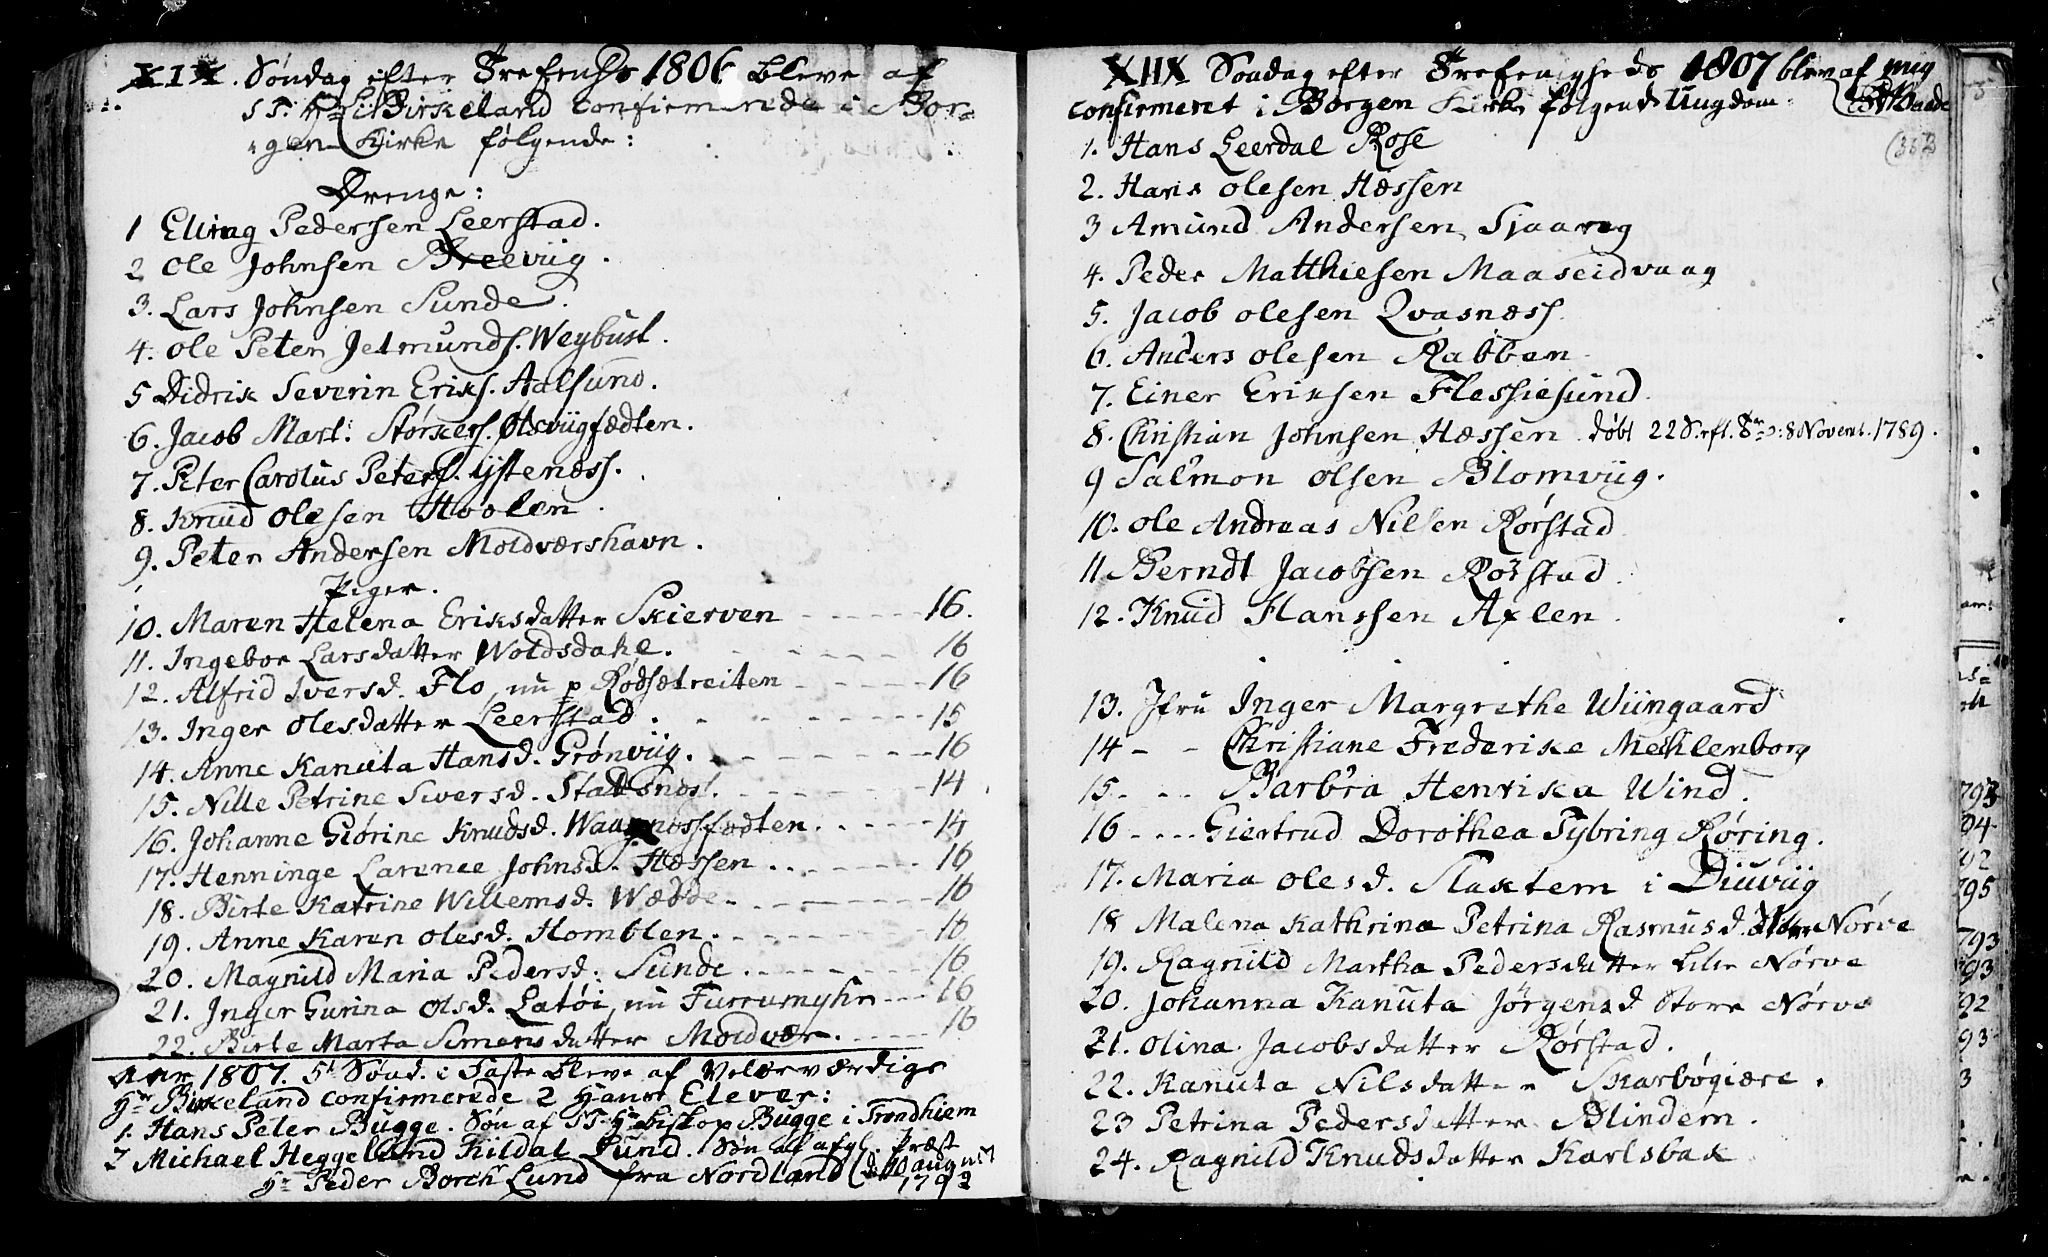 XIX. Søndag efter Trefenhs 1806 bleve af
S T. Hr Birkeland confirmerede i Bor-
gen Kirke følgende:
Drenge:
1 Elling Pedersen Leerstad.
2 Ole Johnsen Breeviig.
3. Lars Johnsen Sunde.
4. Ole Peter Jetmunds. Weybust.
5 Didrik Severin Eriks. Aalsund.
6. Jacob Mart. Størkers. Olsviigfædten.
7. Peter Carolus Peters. Ystenæss.
8. Knud Olesen Hoolen.
9. Peter Andersen Moldværshavn.
Piger.
10. Maren Helena Eriksdatter Skierven - - - - - 16.
11. Ingebor Larsdatter Woldsdahe. - - - - 16
12. Alfrid Iversd. Flo, nu p Rødsætreiten - - - - 16
13. Inger Olesdatter Leerstad. - - - - - 15
14. Anne Kanuta Hansd. Grønviig. - - - - - 16
15. Nille Petrine Siversd. Stattsnæs. - - - - - 14
16. Johanne Giørine Knudsd. Waagnæssfædten. - - - - 14
17. Henninge Larenee Johnsd. Hæssen - - - - 16
18. Birte Katrine Willemsd. Wædde. - - - - 16
19. Anne Karen Olesd. Homblen. - - - - - 16
20. Magnild Maria Pedersd. Sunde. - - - - 16
21. Inger Gurina Olsd. Latøi, nu Furrumyhr - - - 16
22. Birte Marta Simensdatter Moldvær. - - - - 16
Anr 1807. 5t Sønd. i Faste bleve af Velærværdige
Hr Birkeland confirmerede 2 Hans Elever:
1. Hans Peter Bugge. Søn af S T. Hr Biskop Bugge i Trondhiem
2 Michael Heggelund Kildal Lund. Søn af afg. Præst
Hr Peder Borch Lund fra Nordland 1792
XIIX Søndag efter Trefenigheds 1807 blev af mig
confirmeret i Borgen Kirke følgende Ungdom.
1. Hans Leerdal Rose
2. Hans Olesen Hæssen
3 Amund Andersen Sjaaræg
4. Peder Matthiesen Maaseidvaag
5. Jacob Olesen Qvasnæss
6. Anders Olesen Rabben
7. Einer Eriksen Flessiesund
8. Christian Johnsen Hæssen døbt 22 S. eft. Tr. 8 Novemb. 1789.
9 Salmon Olsen Blomviig.
10. Ole Andreas Nilsen Rørstad
11 Berndt Jacobsen Rørstad
12. Knud Hanssen Axlen
13. Jfru Inger Margrethe Wiingaard
14 - - Christiane Frederike Mecklenborg
15 - - - Barbra Henrika Wind
16 - - - Giertrud Dorothea Pybring Røring.
17. Maria Olesd. Slaktem i Diuviig
18 Malena Kathrina Petrina Rasmusd. Norve
19. Ragnild Martha Pedersdatter Lille Nørve
20. Johanna Kanuta Jørgensd Store Nørve
21. Olina Jacobsdatter Rørstad.
22. Kanuta Nilsdatter Skarbøgiære.
23 Petrina Pedersdatter Blindem.
24. Ragnild Knudsdatter Karlsbak